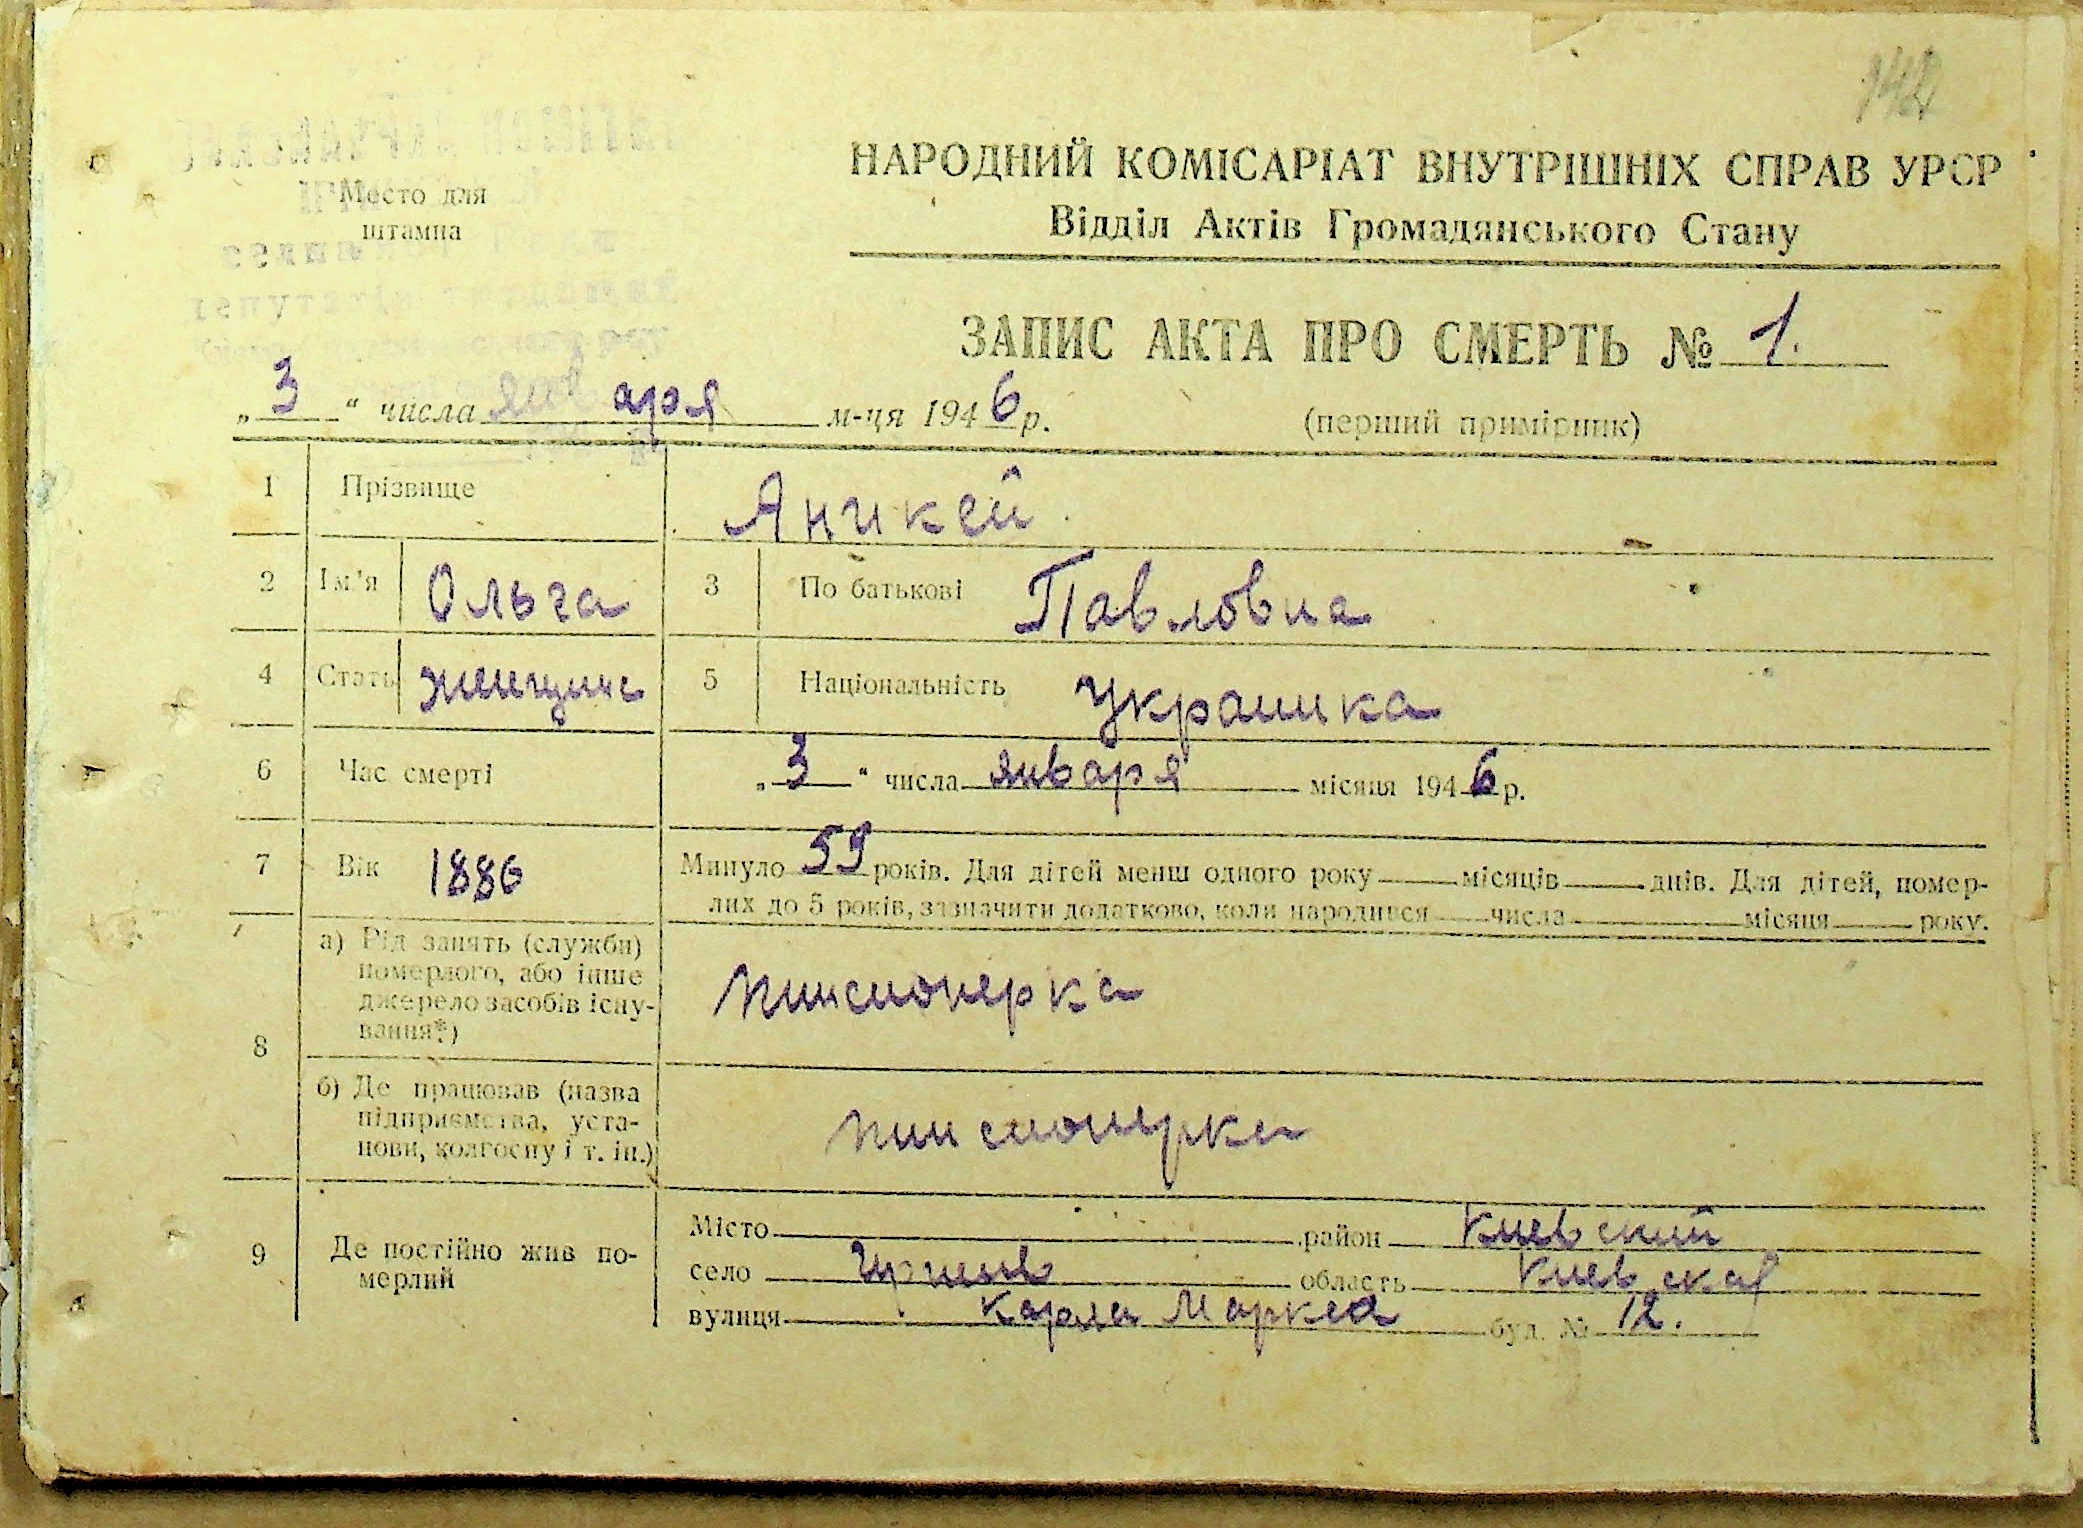 142
НАРОДНИЙ КОМІСАРІАТ ВНУТРІШНІХ СПРАВ УРСР
Место для
штампа
Відділ Актів Громадянського Стану
ЗАПИС АКТА ПРО СМЕРТЬ № 1.
„3“ числа января м-ця 1946 р.
(перший примірник)
1 Прізвище Аникей
2 Ім'я Ольга 3 По батькові Павловна
4 Стать женщина 5 Національність Украинка
6 Час смерті „3“ числа января місяця 1946 р.
7 Вік 1886 Минуло 59 років. Для дітей менш одного року місяців днів. Для дітей, помер-
лих до 5 років, зазначити додатково, коли народився числа місяця року.
8
а) Рід занять (служби)
померлого, або інше
джерело засобів існу-
вання*)
пинсионерка
б) Де працював (назва
підприємства, уста-
нови, колгоспу і т. ін.)
пинсионерка
9 Де постійно жив по-
мерлий
Місто район Киевский
село область Киевская
вулиця Карла Маркса буд. № 12.